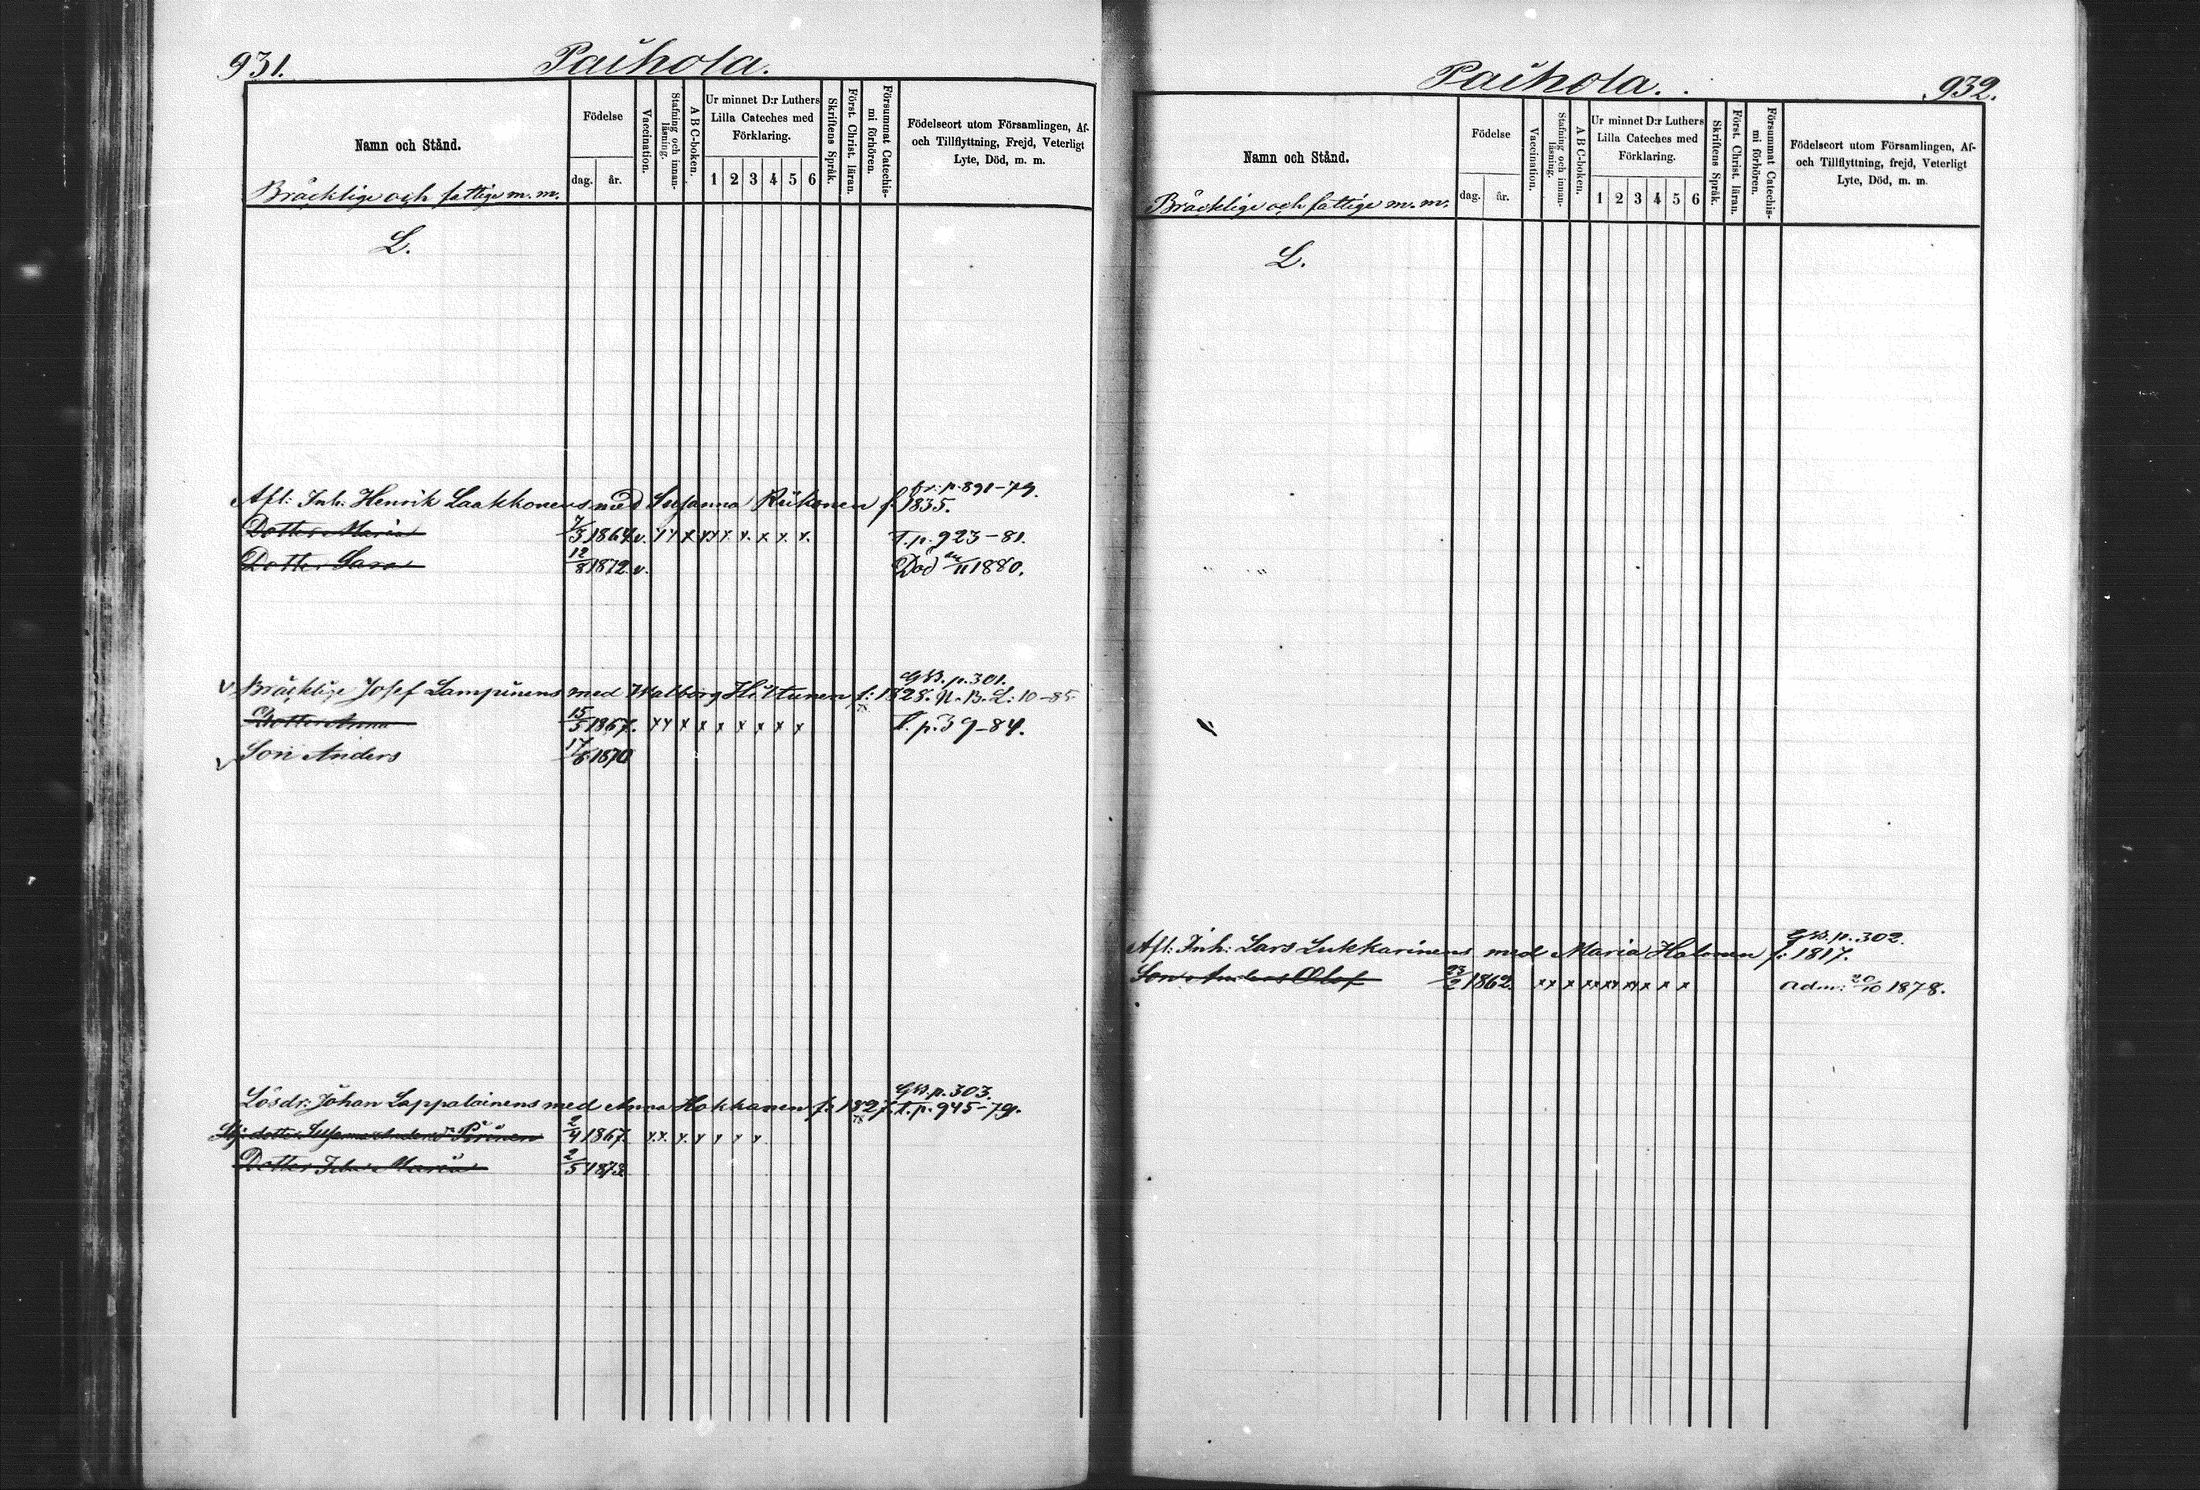 931.
Paihola.
Namn och Stånd.
Bräcklige och fattige m. m.
Födelse
dag. år.
Vaccination.
Stafning och innanläsning.
A B C-boken.
Ur minnet D:r Luthers
Lilla Cateches med
Förklaring.
1 2 3 4 5 6
Skriftens Språk.
Först. Christ. läran.
Försummat Catechismi förhören.
Födelseort utom Församlingen, Af-
och Tillflyttning, Frejd, Veterligt
Lyte, Död, m. m.
L.
fr. p. 891-79.
Afl: Inh. Henrik Laakkonens med Susanna Riikonen f. 1835.
Dotter Maria 7/3 1864 v. x x x x x x x x x x T. p. 923-81.
Dotter Sara 12/8 1872 v. Död /11 1880.
GB. p. 301.
v Bräcklige Josef Lampinens med Walborg Hiltunen f: 1828. N. B. L: 10-85
Dotter Anna 15/5 1867. x x x x x x x x x T. p. 39-84.
v Son Anders 17/8 1870
GB. p. 303.
Lösdr: Johan Lappalainens med Anna Hokkanen f: 1827. T. p. 945-79.
dotter Susanna Piirinen 2/4 1867. x x x x x x x
Dotter Maria 2/5 1873
Paihola.
932.
Namn och Stånd.
Bräcklige och fattige m. m.
Födelse
dag. år.
Vaccination.
Stafning och innanläsning.
A B C-boken.
Ur minnet D:r Luthers
Lilla Cateches med
Förklaring.
1 2 3 4 5 6
Skriftens Språk.
Först. Christ. läran.
Försummat Catechismi förhören.
Födelseort utom Församlingen, Af-
och Tillflyttning, frejd, Veterligt
Lyte, Död, m. m.
L.
GB. p. 302.
Afl: Inh: Lars Lukkarinens med Maria Halonen f: 1817.
Son Anders Olof 23/2 1862 x x x x x x x x x x x adm: 20/10 1878.